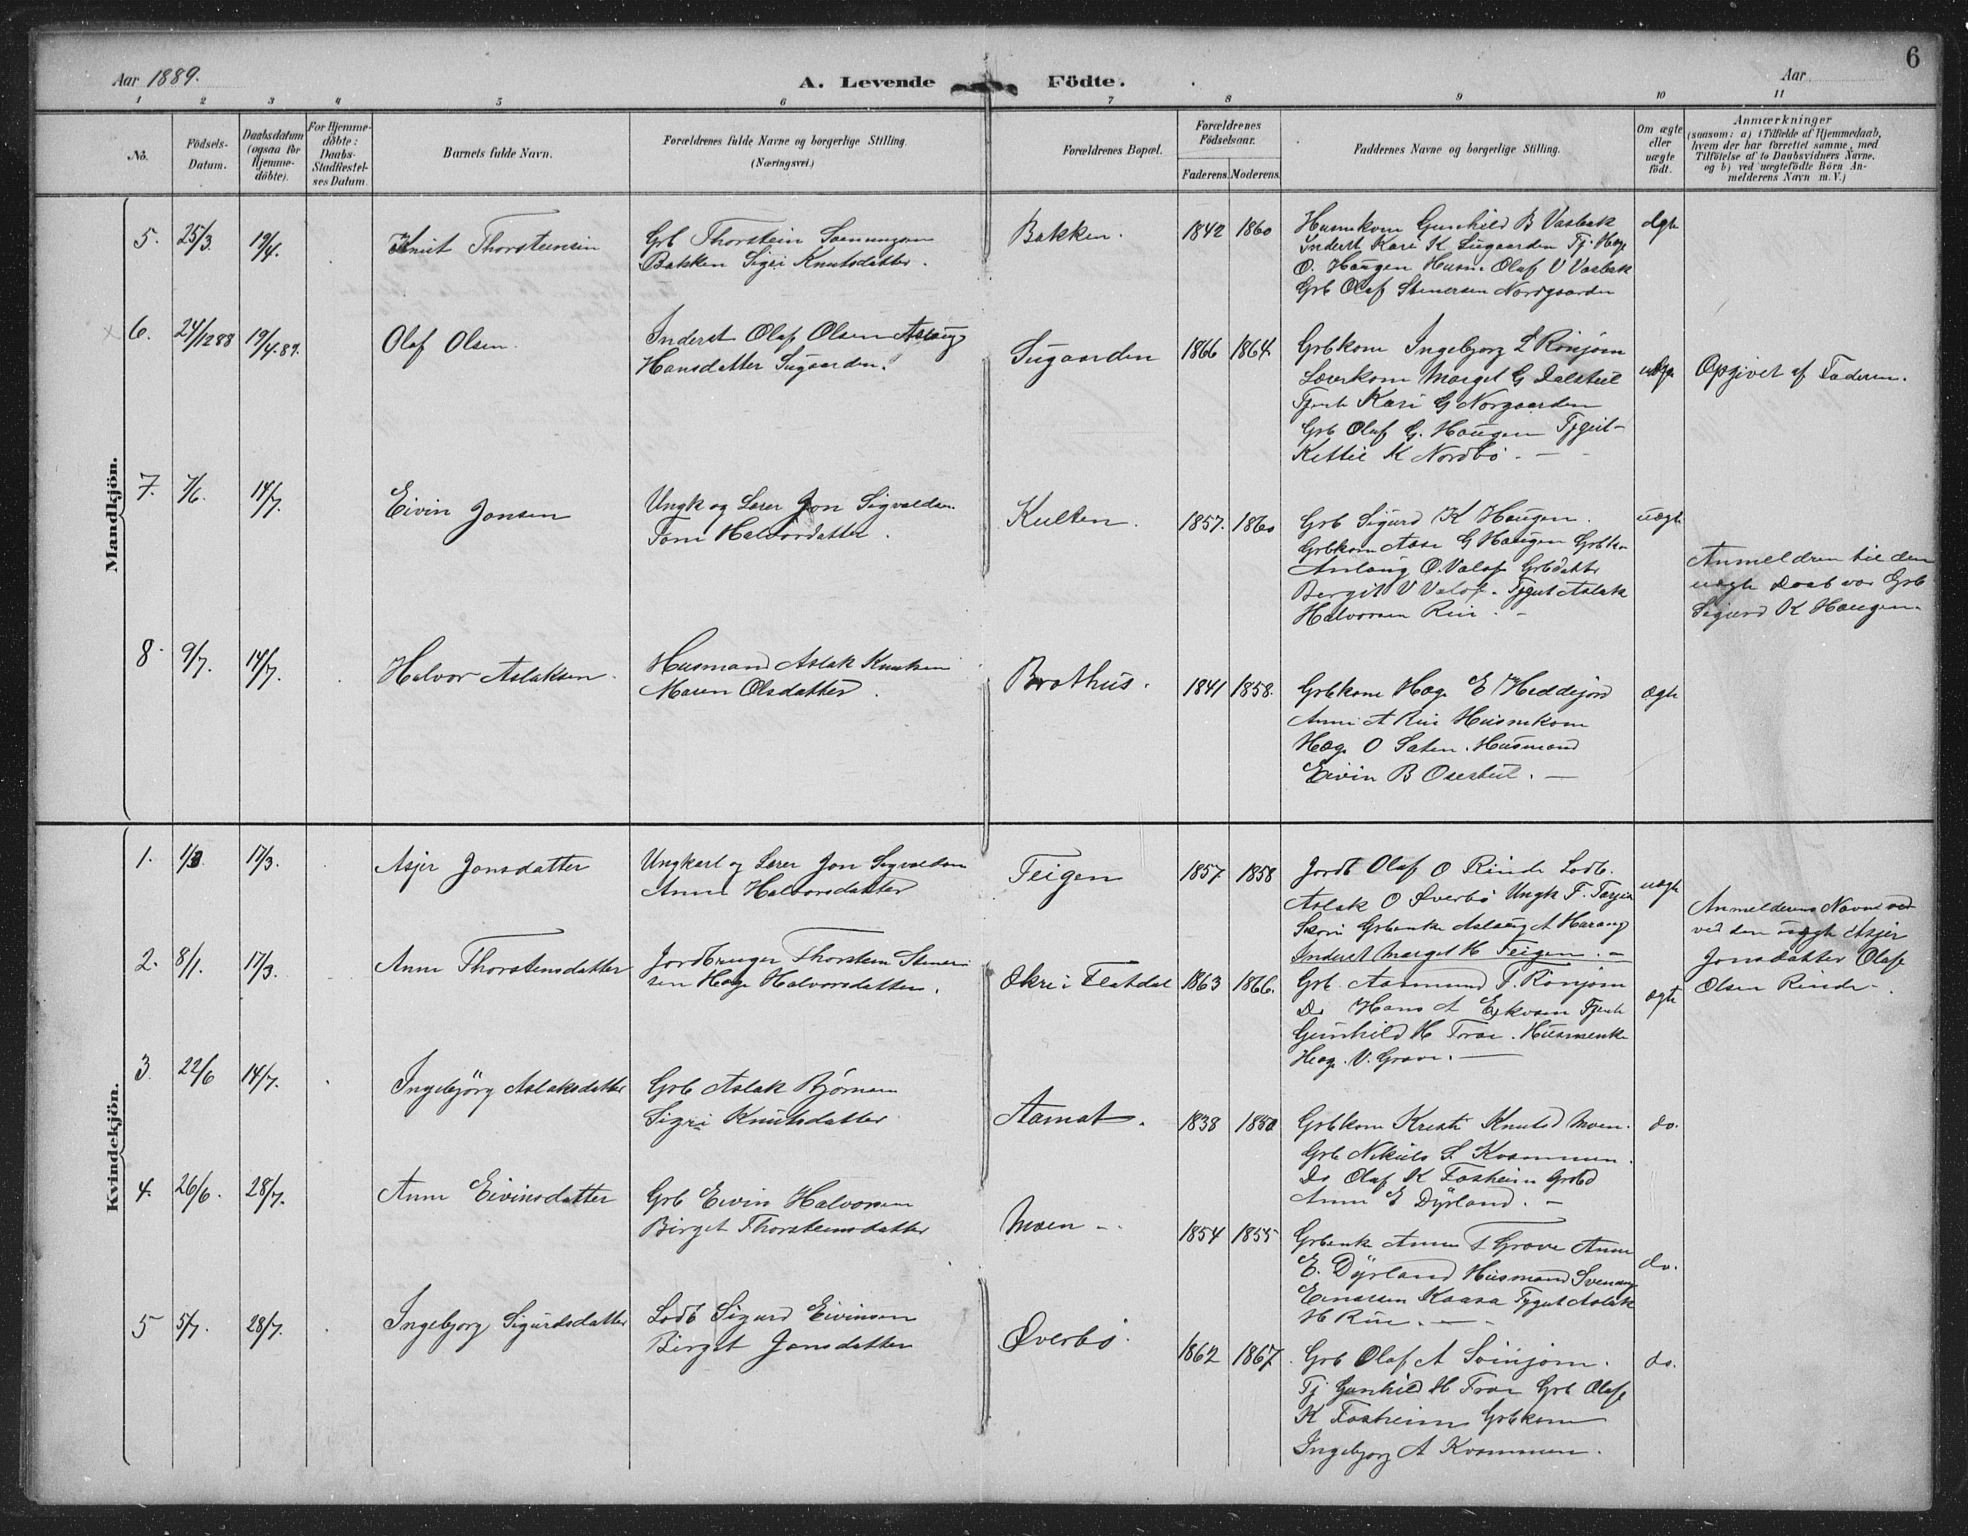 6
Aar 1889.
A. Levende Födte.
Aar
1 2 3 4 5 6 7 8 9 10 11
No.
Födsels-Datum.
Daabsdatum (ogsaa for Hjemmedöbte).
For Hjemmedöbte: Daabs-Stadfæstelses Datum.
Barnets fulde Navn.
Forældrenes fulde Navne og borgerlige Stilling. (Næringsvei.)
Forældrenes Bopæl.
Forældrenes Födselsaar.
Faderens. Moderens.
Faddernes Navne og borgerlige Stilling.
Om ægte eller uægte födt.
Anmærkninger
(saasom: a) i Tilfælde af Hjemmedaab, hvem der har forrettet samme, med Tilföielse af to Daabsvidners Navne, og b) ved uægtefödte Börn Anmelderens Navn m. V.)
Mandkjön.
5. 25/3 19/4 Knut Thorsteinsen
Grb Thorstein
Bakken Sigri Knutsdatter.
Bakken. 1842 1860
Husmkom Gunhild B Vasbæk
Inderst Kari K Sugaarden Tj. Hæge
O. Haugen Husm Olaf V Vasbæk
Grb Olaf Stenersen Nordgaarden
ægte
6. 24/12 88 19/4.89. Olaf Olsen.
Inderst Olaf Olsen Aslaug
Hansdatter Sugaarden.
Sugaarden 1866 1864
Grbkone Ingebjorg L Rönjom
Lærerkom Marget G Dalsteil
Tjente Kari G Norgaarden
Grb Olaf G. Haugen Tjgut
Kittil K Nordbö.
uægte
Opgivet af Faderen.
7. 7/6. 14/7. Eivin Jonsen
Ungk og Lærer Jon Sigvaldsen
Tone Halvorsdatter.
Kulten. 1857. 1860
Grb Sigurd K Haugen.
Grbkom Aase G Haugen Grbko
Anlaug O. Valof Grbdatter
Bergit V Valof. Tjgut Aslak
Halvorsen Rui.
uægte
Anmelderen til den
uægte Daab var Grb
Sigurd K Haugen.
8. 9/7. 14/7. Halvor Aslaksen.
Husmand Aslak Knutsen
Maren Olsdatter.
Brothus. 1841 1858.
Grbkone Hæge E Heddejord
Anne A Rui Husmkom
Hæge O Saten. Husmand
Eivin B Oseteil.
ægte
Kvindekjön.
1. 1/3 17/3. Asjer Jonsdatter
Ungkarl og Lærer Jon Sigvaldsen
Anne Halvorsdatter
Teigen 1857 1858
Jordb Olaf O Rinde Lodb.
Aslak O Øverbö Ungk T. Tarjei
Grbenke Aslaug A Harang
Inderst Marget H Teigen.
uægte
Anmelderens Navn ved
ved den uægte Asjer
Jonsdatter Olaf
Olsen Rinde.
2. 8/1. 17/3. Anne Thorsteinsdatter
Jordbruger Thorstein Stener-
sen Hæge Halvorsdatter.
Økre i Flatdal 1863 1866.
Grb Aasmund T. Rönjom
Do Hans A Ekvam Tjente
Gunhild H Troe. Husmenke
Hæge V. Grave.
ægte
3. 22/6 14/7. Ingebjörg Aslaksdatter
Grb Aslak Bjørnsen
Sigri Knutsdatter
Aamot. 1838 1850
Grbkone Kristi Knutsd Moen.
Grb Nikuls S. Kvammen.
Do Olaf K Fosheim Grbd
Anne E Dyrland.
do.
4. 26/6. 28/7. Anne Eivinsdatter
Grb Eivin Halvorsen
Birget Thorsteinsdatter
Moen 1854 1855
Grbenke Anne T Grave Anne
E. Dyrland Husmand Svenung
Einarsen Kaasa Tjgut Aslak
H Rui.
do.
5 5/7. 28/7. Ingebjorg Sigurdsdatter
Lodb Sigurd Eivinsen
Birget Jonsdatter
Øverbö. 1862 1867.
Grb Olaf A Svinjom.
Tj Gunhild H Troe Grb Olaf
K Fosheim Grbkone
Ingebjorg A Kvammen.
do.